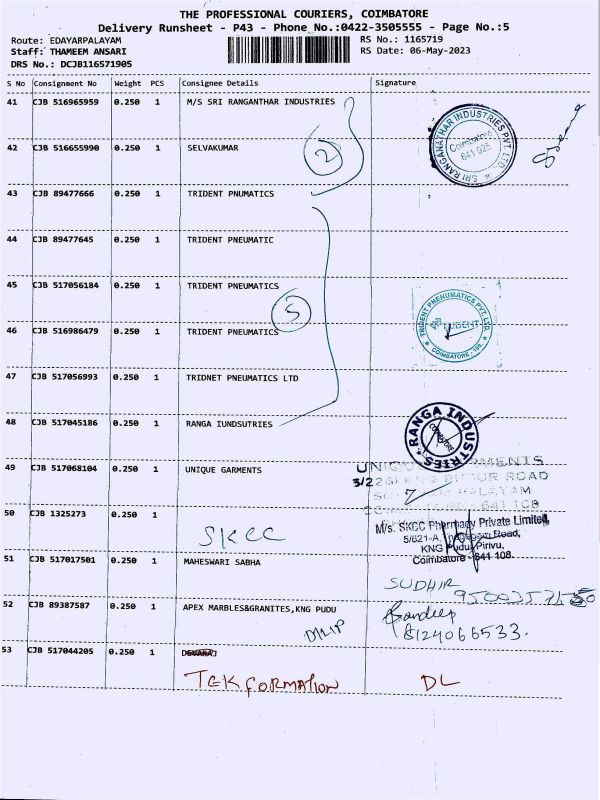 THE PROFESSIONAL COURIERS, COIMBATORE
Delivery Runsheet - P43 - Phone No.:0422-3505555 - Page No.:5
Route: EDAYARPALAYAM RS No.: 1165719
Staff: THAMEEM ANSARI RS Date: 06-May-2023
DRS No.: DCJB116571905
S No Consignment No Weight PCS Consignee Details Signature
41 CJB 516965959 0.250 1 M/S SRI RANGANTHAR INDUSTRIES
SRI RANGANATHAR INDUSTRIES PVT. LTD.
Coimbatore
641 025
42 CJB 516655990 0.250 1 SELVAKUMAR
2
43 CJB 89477666 0.250 1 TRIDENT PNUMATICS
44 CJB 89477645 0.250 1 TRIDENT PNEUMATIC
45 CJB 517056184 0.250 1 TRIDENT PNEUMATICS
5
46 CJB 516986479 0.250 1 TRIDENT PNEUMATICS
TRIDENT PNEUMATICS PVT. LTD.
COIMBATORE - 109
47 CJB 517056993 0.250 1 TRIDNET PNEUMATICS LTD
48 CJB 517045186 0.250 1 RANGA IUNDSUTRIES
RANGA INDUSTRIES
49 CJB 517068104 0.250 1 UNIQUE GARMENTS
50 CJB 1325273 0.250 1
SKCC
M/s. SKCC Pharmacy Private Limited
Road,
KNG Pudu Pirivu,
Coimbatore - 641 108.
51 CJB 517017501 0.250 1 MAHESWARI SABHA
SUDHIR
52 CJB 89387587 0.250 1 APEX MARBLES&GRANITES,KNG PUDU
DILIP
Sandeep
8124066533.
53 CJB 517044205 0.250 1
TEK FORMATION DL